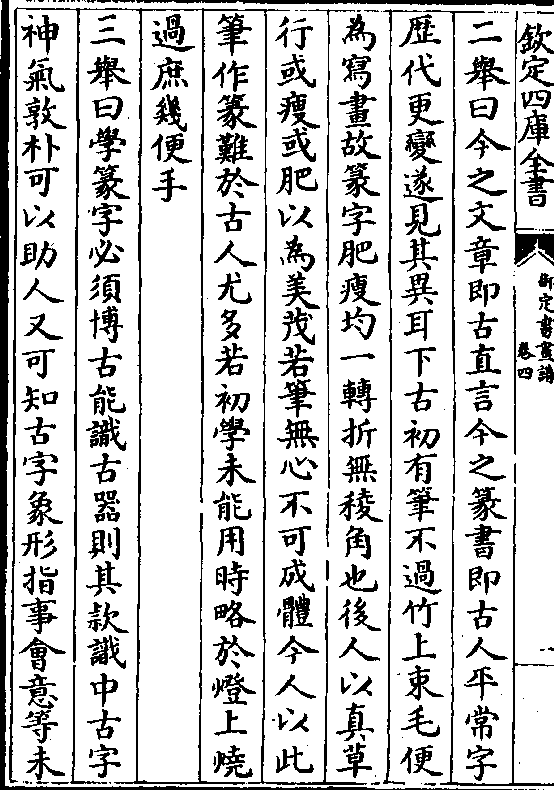 欽定四庫全書
御定書畫譜
卷四
二舉曰今之文章即古直言今之篆書即古人平常字
歴代更變遂見其異耳下古初有筆不過竹上束毛便
為寫畫故篆字肥瘦均一轉折無稜角也後人以真草
行或瘦或肥以為美茂若筆無心不可成體今人以此
筆作篆難於古人尤多若初學未能用時略於燈上燒
過庶幾便手
三舉曰學篆字必須博古能識古器則其款識中古字
神氣敦朴可以助人又可知古字象形指事會意等未